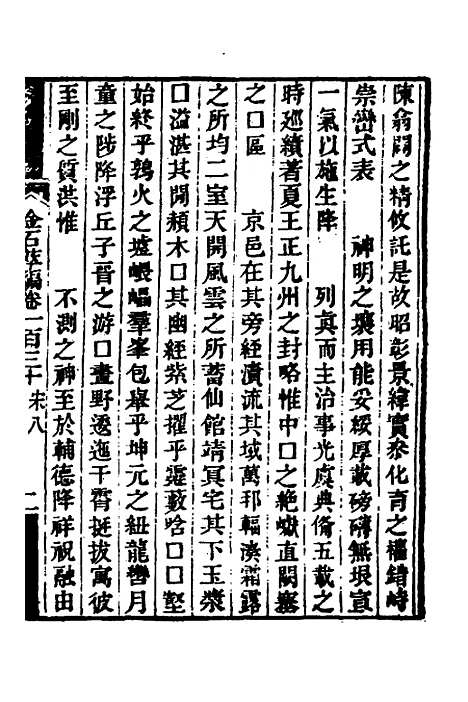 陳翕闢之精攸託是故昭彰景緯實叅化育之權錯峙
崇巒式表　神明之壤用能妥綏厚載磅礴無垠宣
一氣以施生降　列真而主治事光虞典脩五載之
時廵績著夏王正九州之封略惟中口之絶嶽直關塞
之口區　京邑在其旁經瀆流其域萬邦輻湊霜露
之所均二室天開風雲之所蓄仙館靖冥宅其下玉漿
口溢湛其閒頳木口其幽經紫芝擢乎靈藪唅口口壑
始終乎鶉火之墟嵔嵓羣峯包舉乎坤元之紐龍轡月
童之陟降浮丘子晉之游口畫野邃迤干霄挺拔寓彼
至剛之質洪惟　不測之神至於輔德降祥祝融由
金石萃編卷一百三十　宋八　二